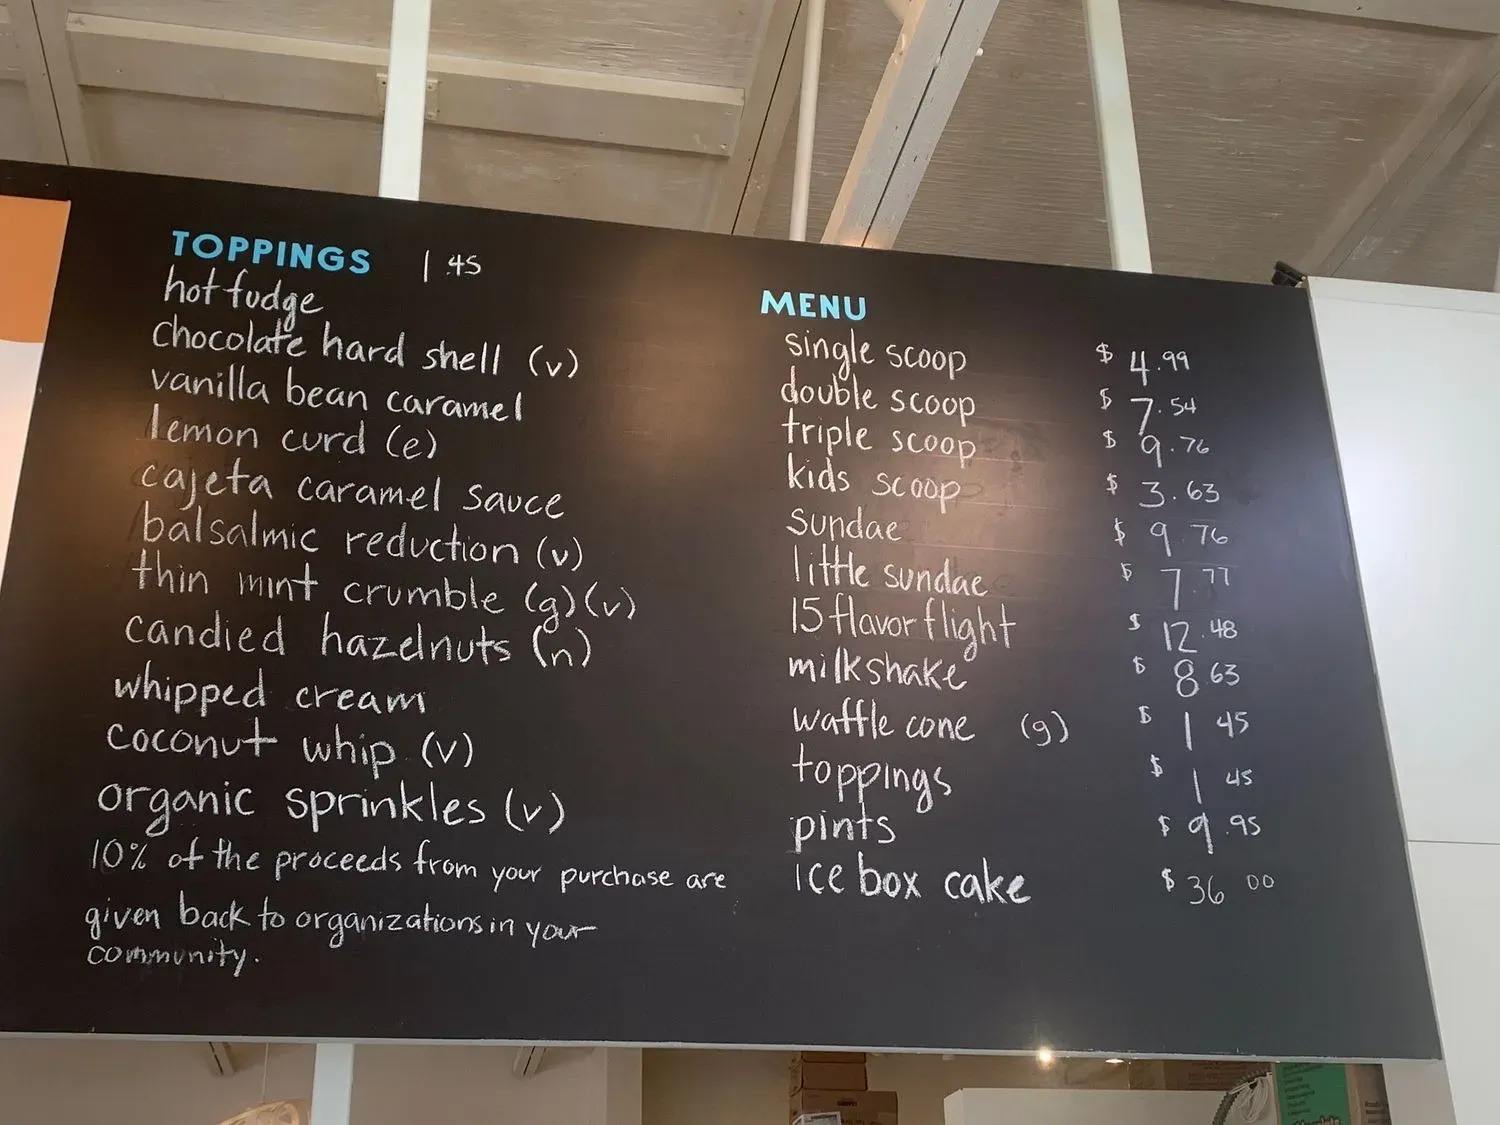 TOPPINGS 1.45
hot fudge
chocolate hard shell (v)
vanilla bean caramel
lemon curd (e)
cajeta caramel sauce
balsalmic reduction (v)
thin mint crumble (g)(v)
candied hazelnuts (n)
whipped cream
coconut whip (v)
organic sprinkles (v)
10% of the proceeds from your purchase are
given back to organizations in your
community.
MENU
single scoop $ 4.99
double scoop $ 7.54
triple scoop $ 9.76
kids scoop $ 3.63
sundae $ 9.76
little sundae $ 7.77
15 flavor flight $ 12.48
milkshake $ 8.63
waffle cone (g) $ 1 45
toppings $ 1 45
pints $ 9.95
ice box cake $ 36 00